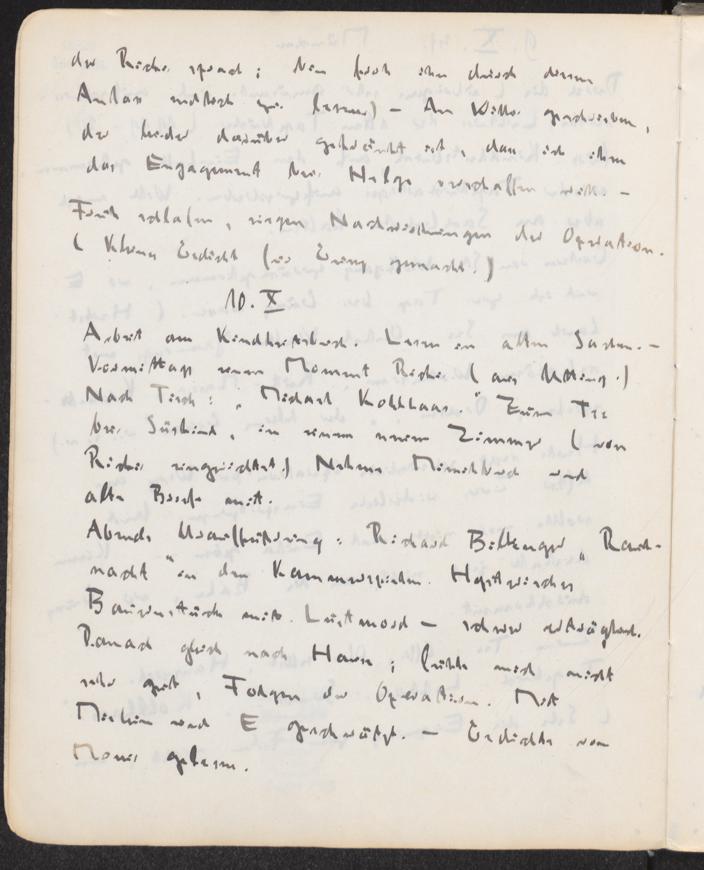 der Ricki sprach; ihn durch diesen
Anlass endlich zu lernen) — An Willi geschrieben,
der leider darüber gekränkt ist, dass ich ihm
das Engagement bei Helge verschaffen will. —
Früh schlafen, wegen Nachwirkungen der Operation.
( Kleines Gedicht gemacht.)
10. X
Arbeit am Kindheitsbuch. Lesen in alten Sachen. —
Vormittags einen Moment Ricki (aus Utting.)
Nach Tisch: „Michael Kohlhaas." Zum Tee
bei Süskind, in seinem neuen Zimmer (von
Ricki eingerichtet.) Nehme Manuskript und
alte Briefe mit.
Abends Uraufführung: Richard Billinger „Rauh-
nacht" in den Kammerspielen. Hysterisches
Bauernstück mit Lustmord — schwer erträglich.
Danach gleich nach Haus; fühle mich nicht
sehr gut, Folgen der Operation. Mit
Mielein und E geschwätzt. — Gedichte von
gelesen.